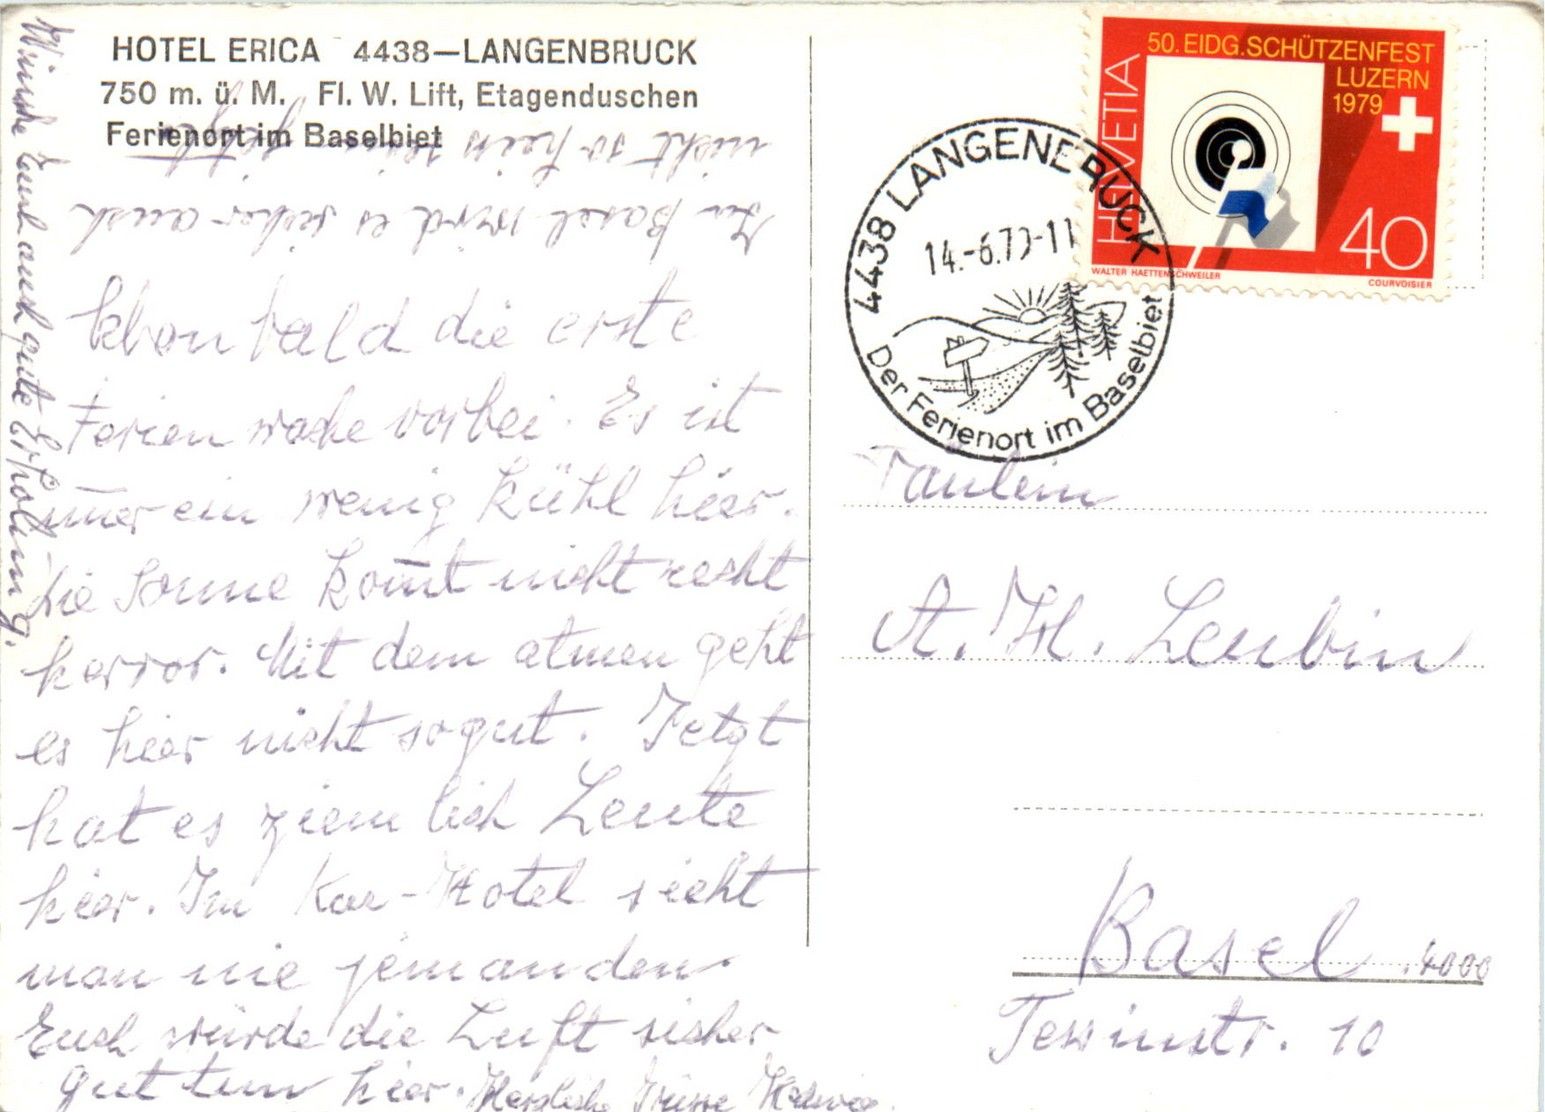 HOTEL ERICA 4438—LANGENBRUCK
750 m. ü. M. Fl. W. Lift, Etagenduschen
Ferienort im Baselbiet
Schon bald die erste
Ferien woche vorbei. Es ist
im̄er ein wenig kühl hier.
Die Sonne kom̄t nicht recht
hervor. Mit dem atmen geht
es hier nicht so gut. Jetzt
hat es ziemlich Leute
hier. Im Kur-Hotel sieht
man nie jemanden.
Euch würde die Luft sicher
gut tun hier. Herzliche Grüsse Hedwig
In Basel wird es sicher auch
nicht so heis sein
Wünsche Euch auch gute Erholung.
50. EIDG. SCHÜTZENFEST
LUZERN
1979
HELVETIA
40
WALTER HAETTENSCHWEILER
COURVOISIER
4438 LANGENBRUCK
14.-6.79-11
Der Ferienort im Baselbiet
Fräulein
A. M. Leubin
Basel 4000
Tessinstr. 10